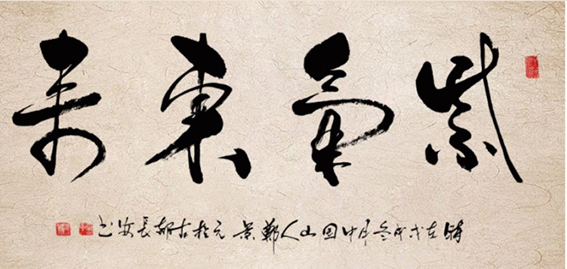 紫氣東来
在戊戌冬月中国山人鄭景元於古都長安书